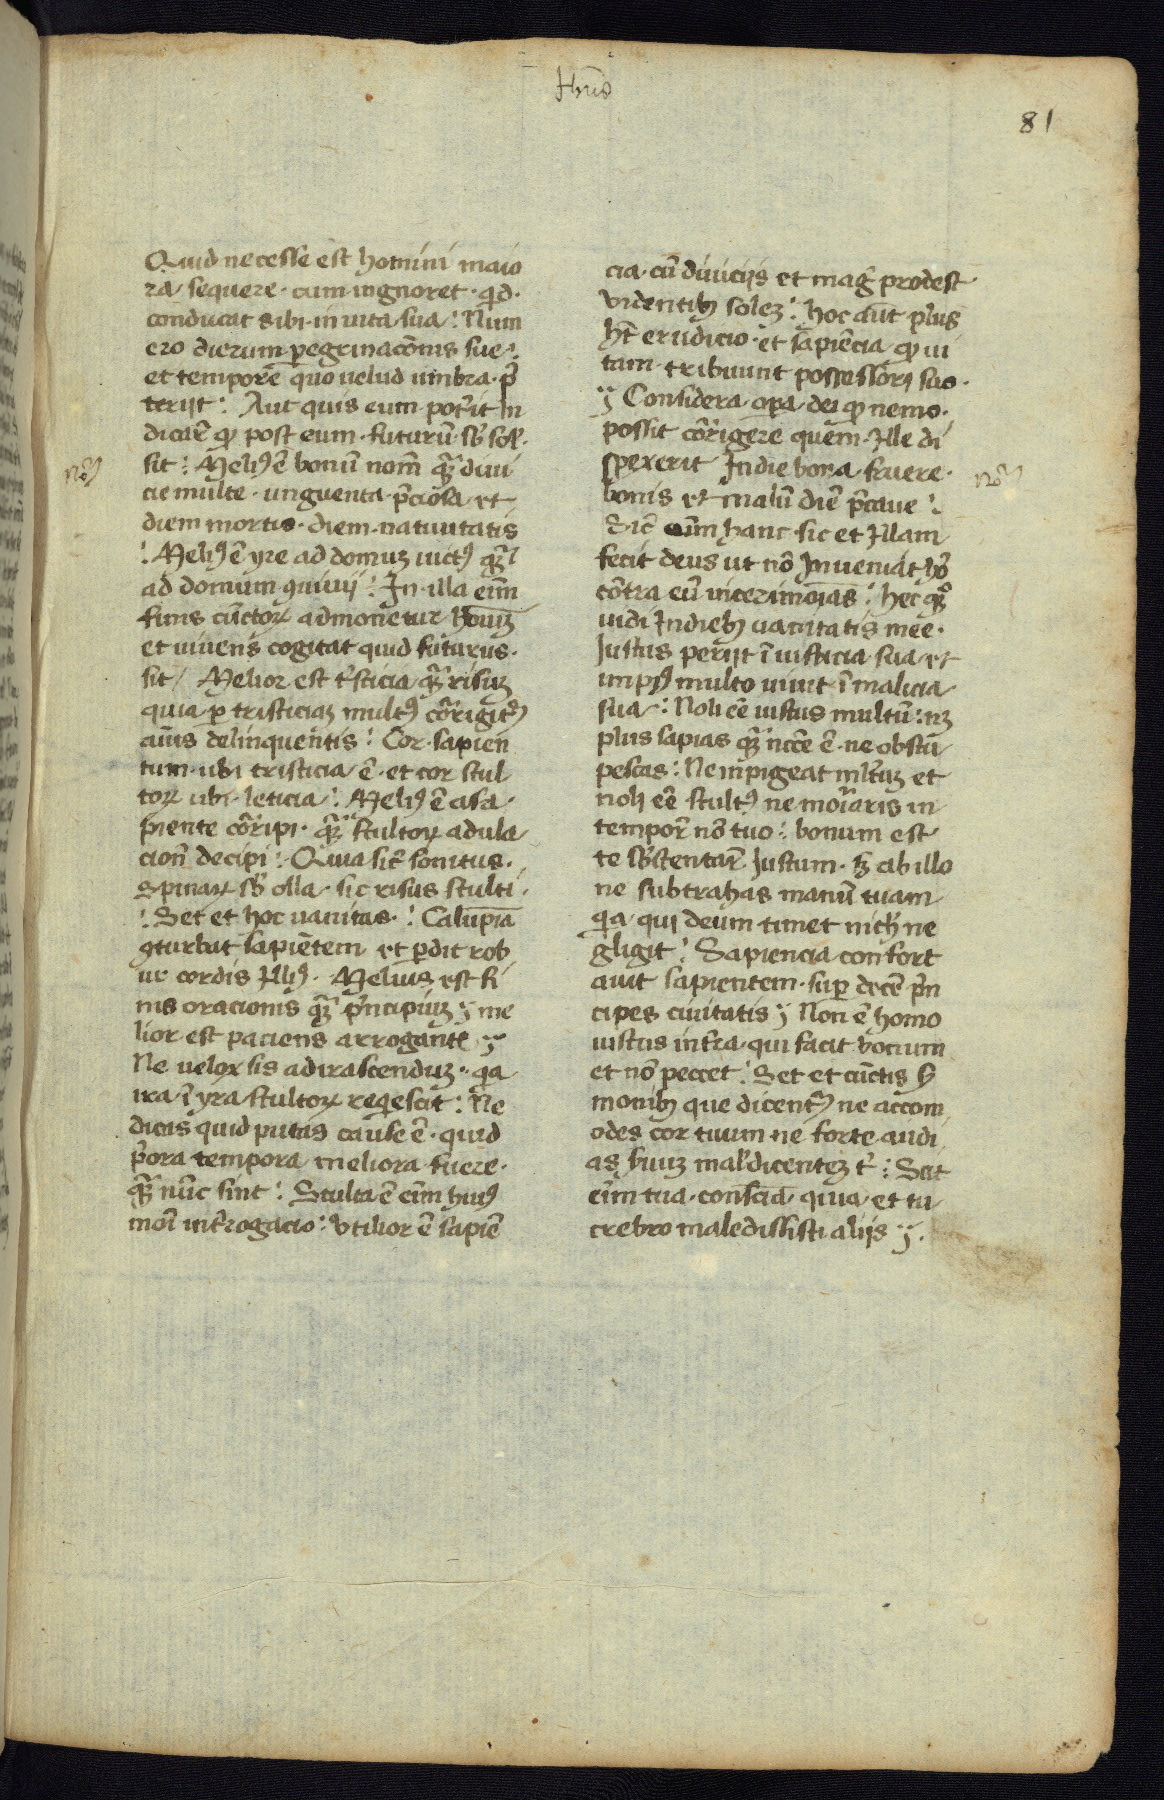 Jhūs
81
Quid necesse est homini maio
ra sequere · cum ingnoret · qd ·
conducat sibi · in uita sua : Num
ero dierum peregrinacōnis sue :
et tempore quo uelud vmbra · p̄
terijt : Aut quis eum potīt in
dicar̄ qͥ post eum · futurū sb̄ sol̄ ·
sit : Meliꝰ ē bonū nom̄ qͣꝫ diui
cie multe · unguenta · p̄ciosa et
diem mortis · diem · natiuitatis
: Meliꝰ ē yre ad domuꝫ luctꝰ qͣꝫ
ad domum ꝯuiuij : In · illa eīm
finis cūctoꝝ admonetur hoīuꝫ
et uiuens cogitat quid futurus ·
sit / Melior est tⁱsticia qͣꝫ risuꝫ
quia ꝑ tristiciaꝫ multꝰ cōrrigitꝰ
aīus delinquentis : Cor · sapien
tum · ubi tristicia ē · et cor stul
toꝝ ubi · leticia : Meliꝰ ē a sa ·
piente cōrripi · qͣꝫ stultoꝝ adula
cion̄ decipi : Quia sic̄ sonitus ·
spinaꝝ sb̄ olla · sic risus stulti ·
: Set et hoc uanitas · : Calūpnia
ꝯturbat sapiētem et ꝑdit rob
ur cordis illiꝰ · Melius est fi
nis oracionis qͣꝫ p̄ncipiuꝫ ÿ me
lior est paciens arrogantē ÿ
Ne uelox sis ad irascenduꝫ · qa
ira ī yra stultoꝝ reqescit : Ne
dicas quid putas cause ē · quid
p̄ora tempora meliora fuere ·
qͣꝫ nūc sint : Stulta ē eīm huiꝰ
moī int̄rogacio : vtilior ē sapiē
cia · cū diuicijs et maḡ prodest
videntibꝰ soleꝫ : hoc aūt plus
hт̄ erudicio · et sapiēcia qͥ ui
tam · tribuunt possessori suo ·
ÿ Considera · oꝑa · dei qͥ nemo ·
possit cōrrigere quem · ille di
spexerit In die bona · fruere ·
bonis et malū diē p̄caue :
Sic̄ eīm hanc sic et illam
fecit deus ut nō Inueniat hō
cōtra eū incerimoīas : hec qͦꝫ
uidi In diebꝰ uanitatis mee ·
Justus perijt ī iusticia · sua · et
impiꝰ multo uiuit ī malicia
sua : Noli eē iustus multū : nꝫ
plus sapias qͣꝫ nc̄ce ē · ne obstu
pescas : Ne inpigeat mlt̄uꝫ et
noli eē stultꝰ ne moīaris in
tempor̄ nō tuo : bonum est
te sb̄stentar̄ Justum · sꝫ ab illo
ne subtrahas manū tuam
qa · qui deum timet nich̄ ne
gligit : Sapiencia confort
auit sapientem · suꝑ decē p̄n
cipes ciuitatis ÿ Non ē homo
iustus int̄ra · qui facit bonum
et nō peccet : Set et cūctis s̄
monibꝰ que dicentꝰ ne accom
odes cor tuum · ne forte audi
as s̄uuꝫ mal̄dicenteꝫ t̄ : Scit
eīm tua · consciā · quia · et tu
crebro maledissisti alijs ÿ ·